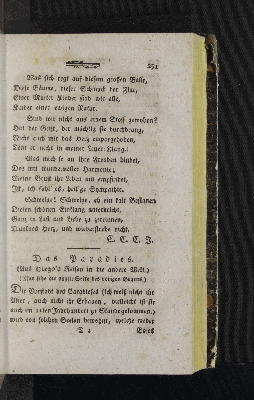 291
Was sich regt auf diesem großen Balle,
Diese Bäume, dieser Schmuck der Flur,
Einer Mutter Kinder sind wir alle,
Kinder einer ewigen Natur.
Sind wir nicht aus einem Stoff gewoben?
Hat der Geist, der mächtig sie durchdrang,
Nicht auch mir das Herz emporgehoben,
Tönt er nicht in meiner Leyer Klang?
Was mich so an ihre Freuden bindet,
Den mit wundervoller Harmonie,
Meine Brust ihr Leben mit empfindet,
Ist, ich fühl' es, heil'ge Sympathie.
Schwelge! Schwelge, eh ein kalt Besinnen
Diesen schönen Einklang unterbricht,
Ganz in Lust und Liebe zu zerrinnen,
Trunknes Herz, und widerstrebe nicht.
L. E. C. J.
Das Paradies.
(Aus Quego's Reisen in die andere Welt.)
(Man sehe die zweite Seite des vorigen Bogens.)
Die Vorstadt des Paradieses (ich weiß nicht ihr
Alter, auch nicht ihr Erbauer, vielleicht ist sie
auch im 12ten Jahrhundert zu Stande gekommen,)
wird von solchen Seelen bewohnt, welche weder
T 2
Böses